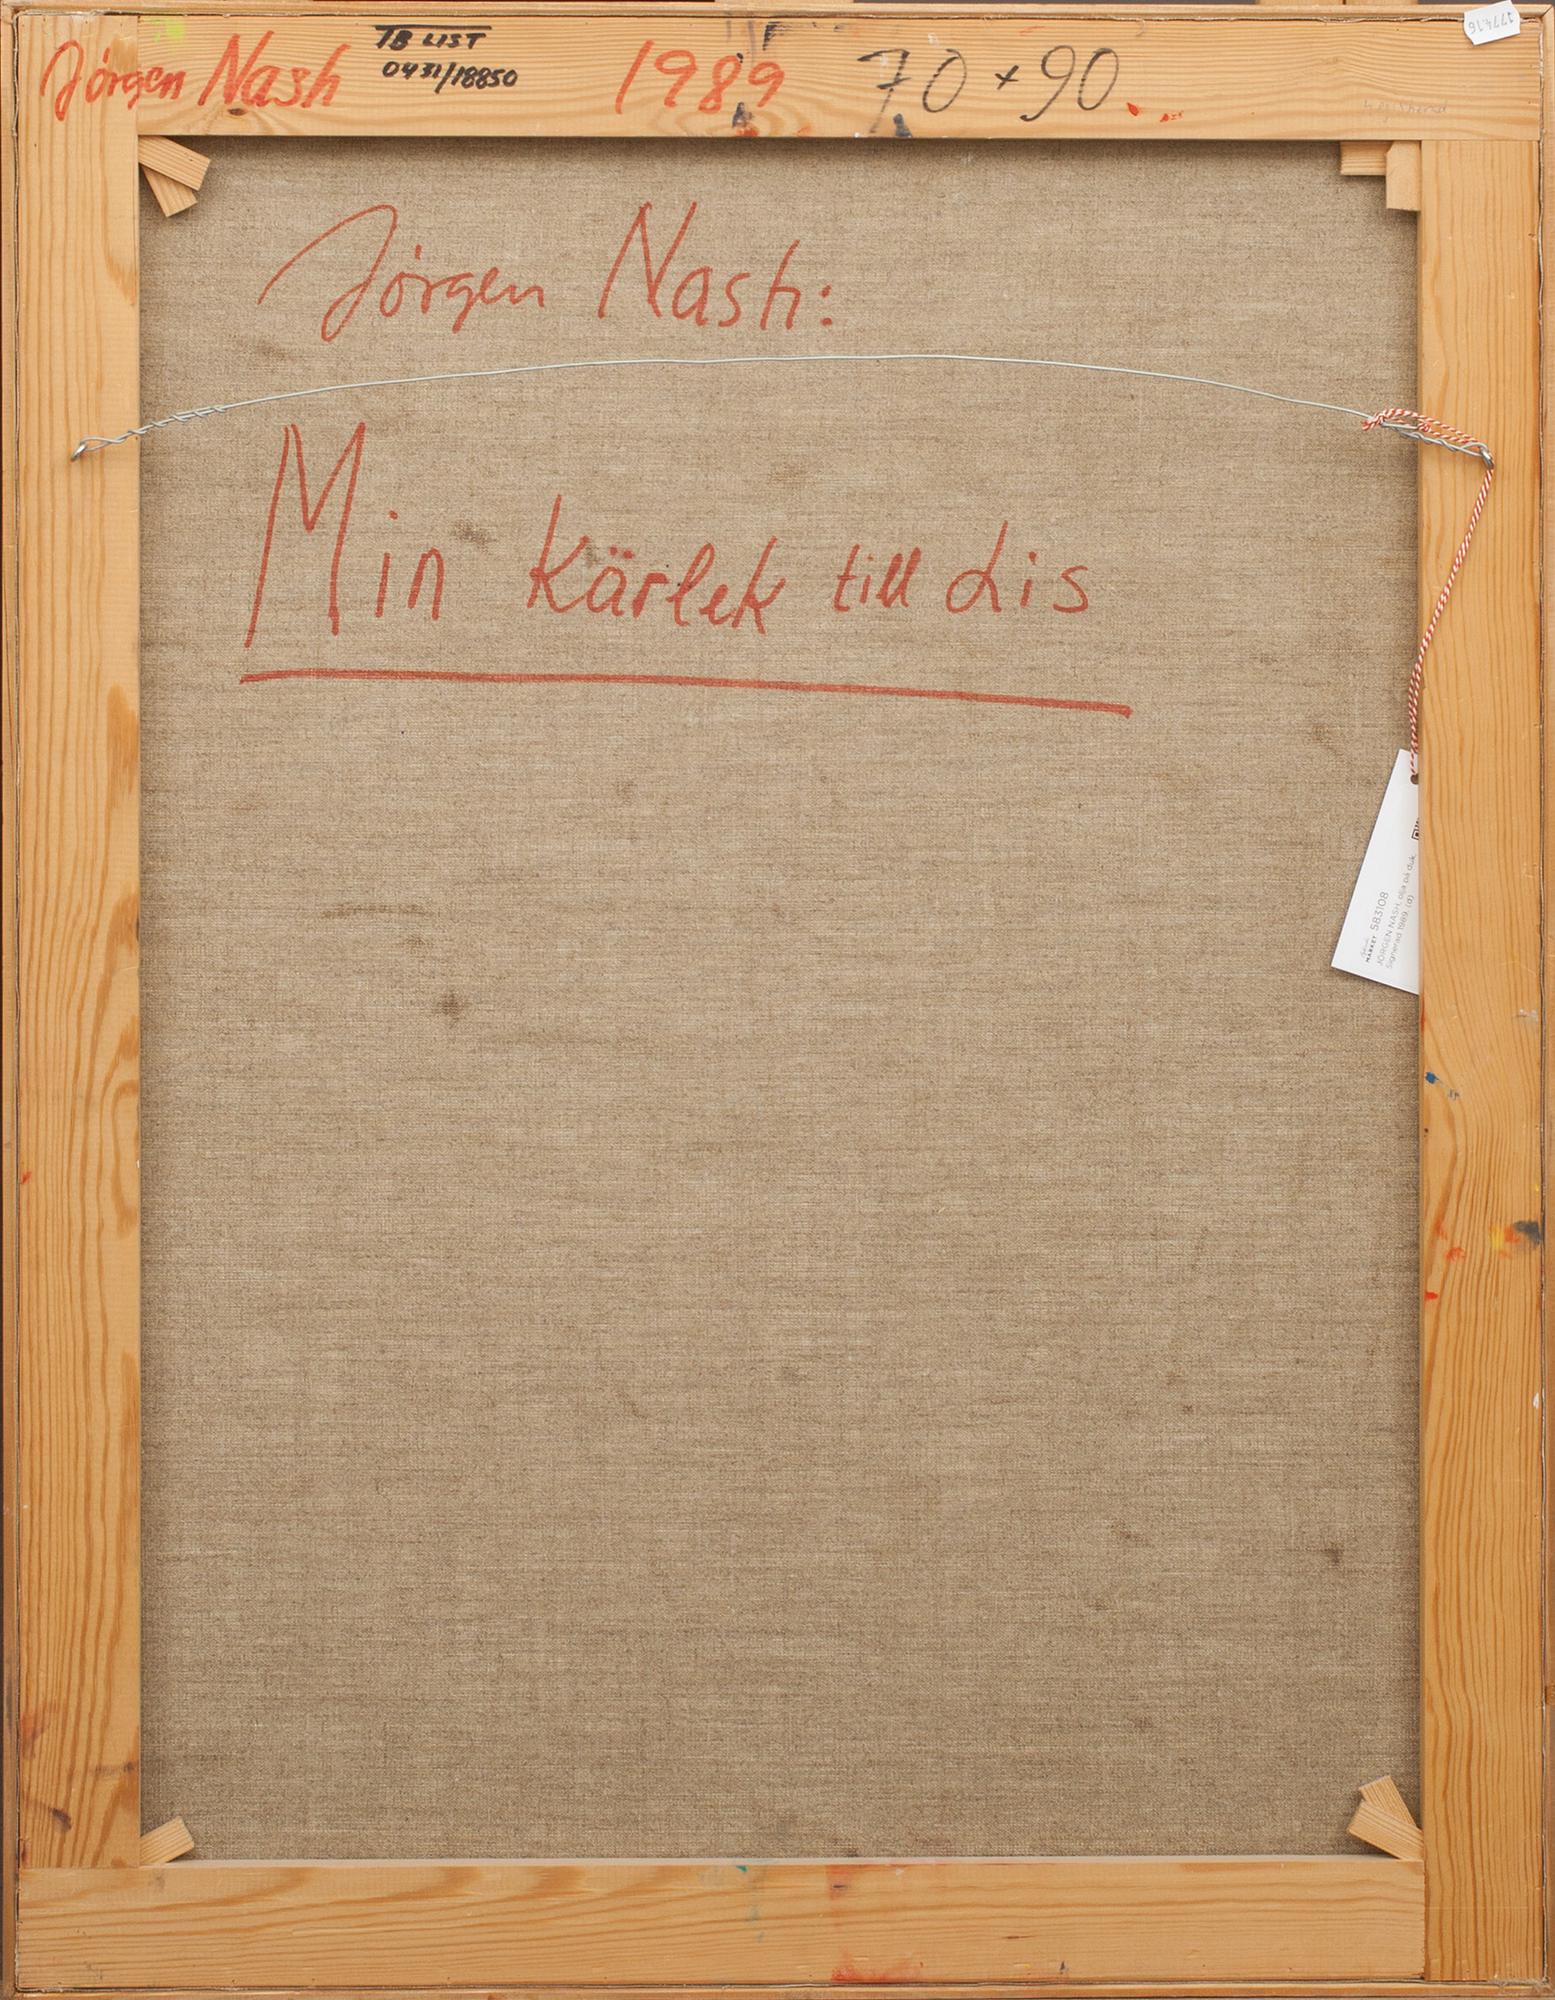 Jörgen Nash
TB LIST
0431/18850
1989 70 x 90
Jörgen Nash:
Min Kärlek till Lis
MARKET 583108
JÖRGEN NASH, olja på duk,
Signerad 1989. (d)
377416